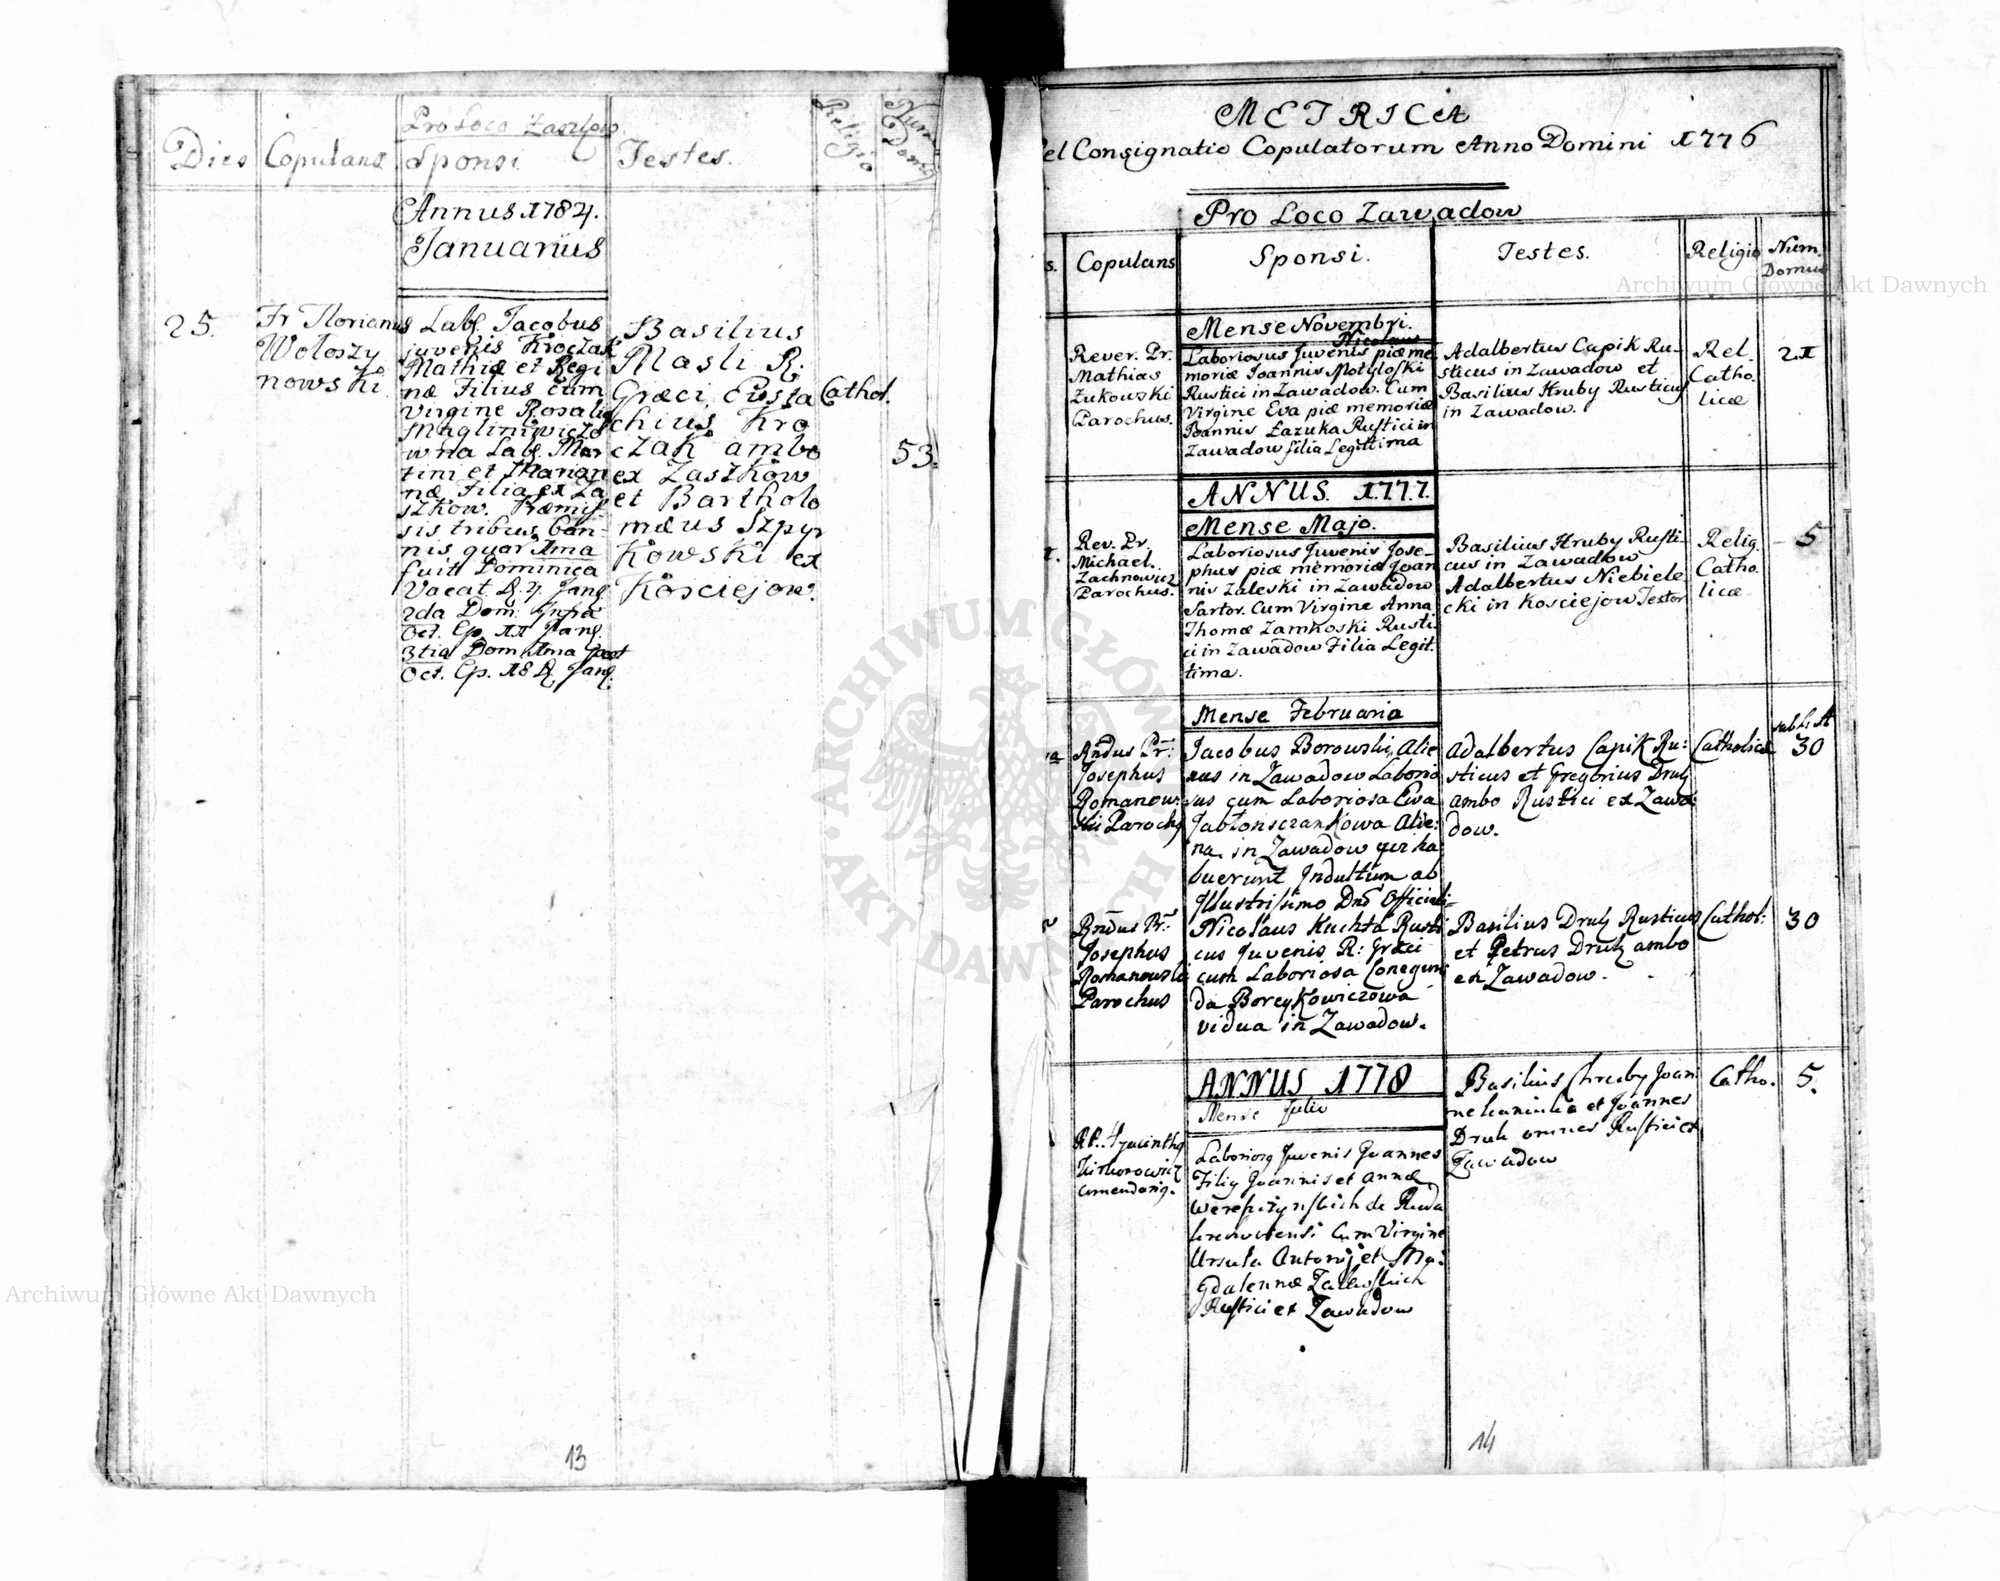 Pro Loco Zaszkow
Dies
Copulans
Sponsi
Testes.
Religio
Num Domus
Annus 1784.
Januarius
25.
Fr Florianus
Woloszy
nowski
Lab. Jacobus
juvenis Kroczak
Mathiæ et Regi
næ Filius cum
Virgine Rosalia
wna Lab. Mar
tini et Marian
næ Filia ex Za
szkow. Præmis
sis tribus Ban
nis quar Ima
fuit Dominica
Vacat D. 4. Jan
2da Dom. Infra
Oct. Ep. 11 Jan.
3tia Dom Ima post
Oct. Ep. 18 D. Jan.
Basilius
Masli R.
Græci, Eusta
chius Kro
czak ambo
ex Zaszkow
et Bartholo
mæus Szpyr
kowski ex
Kosciejow.
Cathol.
53.
13
METRICA
el Consignatio Copulatorum Anno Domini 1776
Pro Loco Zawadow
s.
Copulans
Sponsi.
Testes.
Religio
Num.
Domus
Mense Novembri.
Nicolaus
Rever. Pr.
Mathias
Zukowski
Parochus.
Laboriosus Juvenis piæ me
moriæ Joannis Motyloski
Rustici in Zawadow. Cum
Virgine Eva piæ memoriæ
Joannis Łazuka Rustici in
Zawadow filia Legittima
Adalbertus Capik Ru-
sticus in Zawadow et
Basilius Hruby Rusticus
in Zawadow.
Rel.
Catho.
licæ
21
ANNUS. 1777.
Mense Majo.
Rev. Pr.
Michael.
Zachnowicz
Parochus.
Laboriosus Juvenis Jose-
phus piæ memoriæ Joan
nis Zaleski in Zawadow
Sartor. Cum Virgine Anna
Thomæ Zamkoski Rusti
ci in Zawadow Filia Legit.
tima.
Basilius Hruby Rusti-
cus in Zawadow
Adalbertus Niebiele
cki in Kosciejow Textor
Relig.
Catho.
licæ
5
Mense Februaria
Rndus Pr:
Josephus
Romanow.
ski Parochus
Jacobus Borowski, Alie
nus in Zawadow Laborio
sus cum Laboriosa Ewa
Jablonsczankowa Alie:
na in Zawadow qui ha
buerunt Indultum ab
Illustrissimo Dno Officiali
Adalbertus Capik Ru:
sticus et Gregorius Druk
ambo Rustici ex Zawa
dow.
Catholicæ
30
Rndus Pr:
Josephus
Romanowski
Parochus
Nicolaus Kuchta Rusti
cus Juvenis R: Græci
cum Laboriosa Conegun
da Borcykowiczowa
vidua in Zawadow.
Basilius Druk Rusticus
et Petrus Druk ambo
ex Zawadow.
Cathol:
30
ANNUS 1778
Mense Julio
Laborios Juvenis Joannes
Filis Joannis et Annæ
de Ruda
Cum Virgine
Ursula Antonij et Ma:
gdalennæ
Rustici ex Zawadow
Basilius Chruby Joan
ne et Joannes
Druk omnes Rustici ex
Zawadow
Catho.
5.
14
ARCHIWUM GŁÓWNE AKT DAWNYCH
Archiwum Główne Akt Dawnych
Archiwum Główne Akt Dawnych